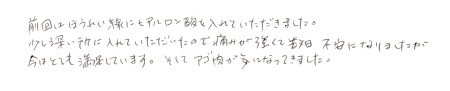 前回はほうれい線にヒアルロン酸を入れていただきました。
少し深い所に入れていただいたので痛みが強くて当日 不安になりましたが
今はとても満足しています。そしてアゴ肉が気になってきました。